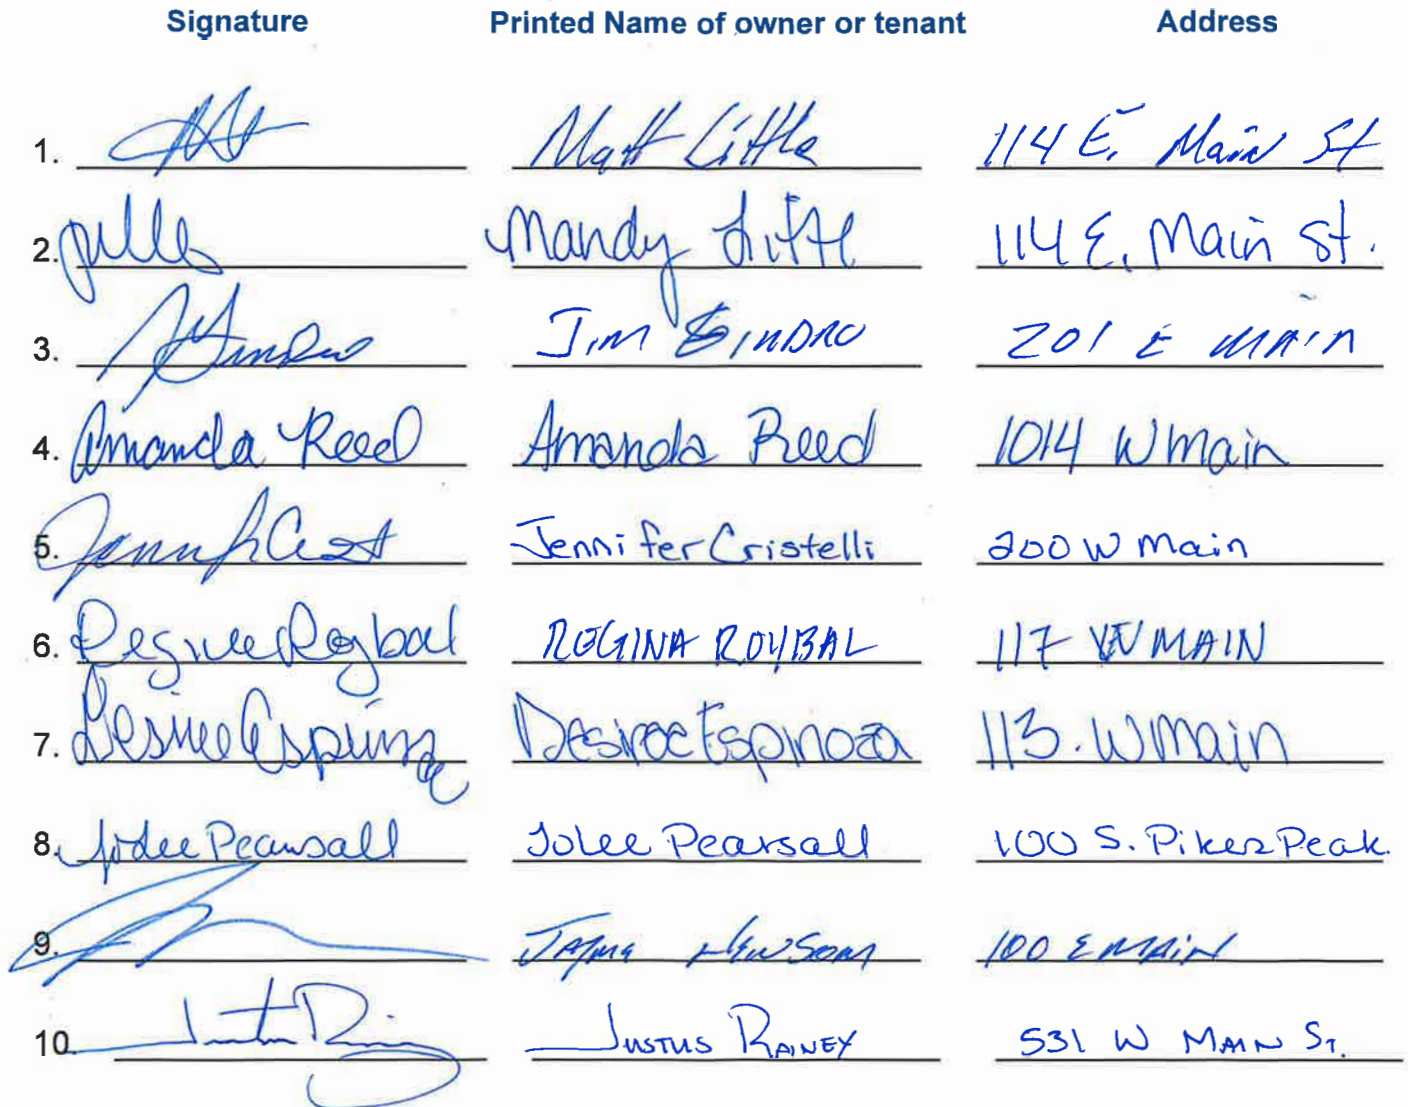 Signature Printed Name of owner or tenant Address
1. Matt Little 114 E. Main St
2. Mandy Little 114 E. Main St.
3. Jim Gindro 201 E Main
4. Amanda Reed Amanda Reed 1014 W Main
5. Jennifer Cristelli 200 W Main
6. Regina Roybal REGINA ROYBAL 117 W MAIN
7. Desiree Espinoza Desiree Espinoza 113. W Main
8. Jolee Pearsall Jolee Pearsall 100 S. Pikes Peak.
9. Newsom 100 E MAIN
10. JUSTUS RAINEY 531 W MAIN ST.